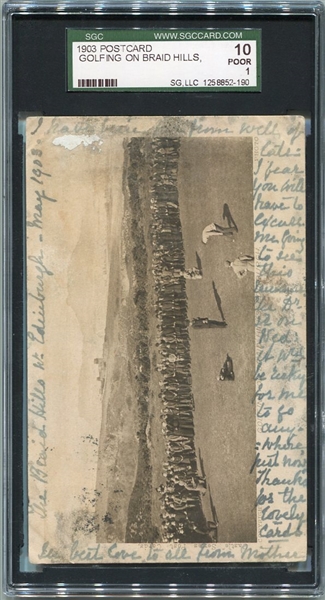 SGC
WWW.SGCCARD.COM
1903 POSTCARD
GOLFING ON BRAID HILLS,
10
POOR
1
SG, LLC 1258852-190
I have been far from well of
late-
I fear
you will
have to
excuse
me going
to see
this
Dr
is on
Wed:
it will
be risky
for me
to go
any-
-where
just now
Thanks
for the
lovely
Cards
best Love to all from Mother
The Braid Hills Nr Edinburgh - May 1903